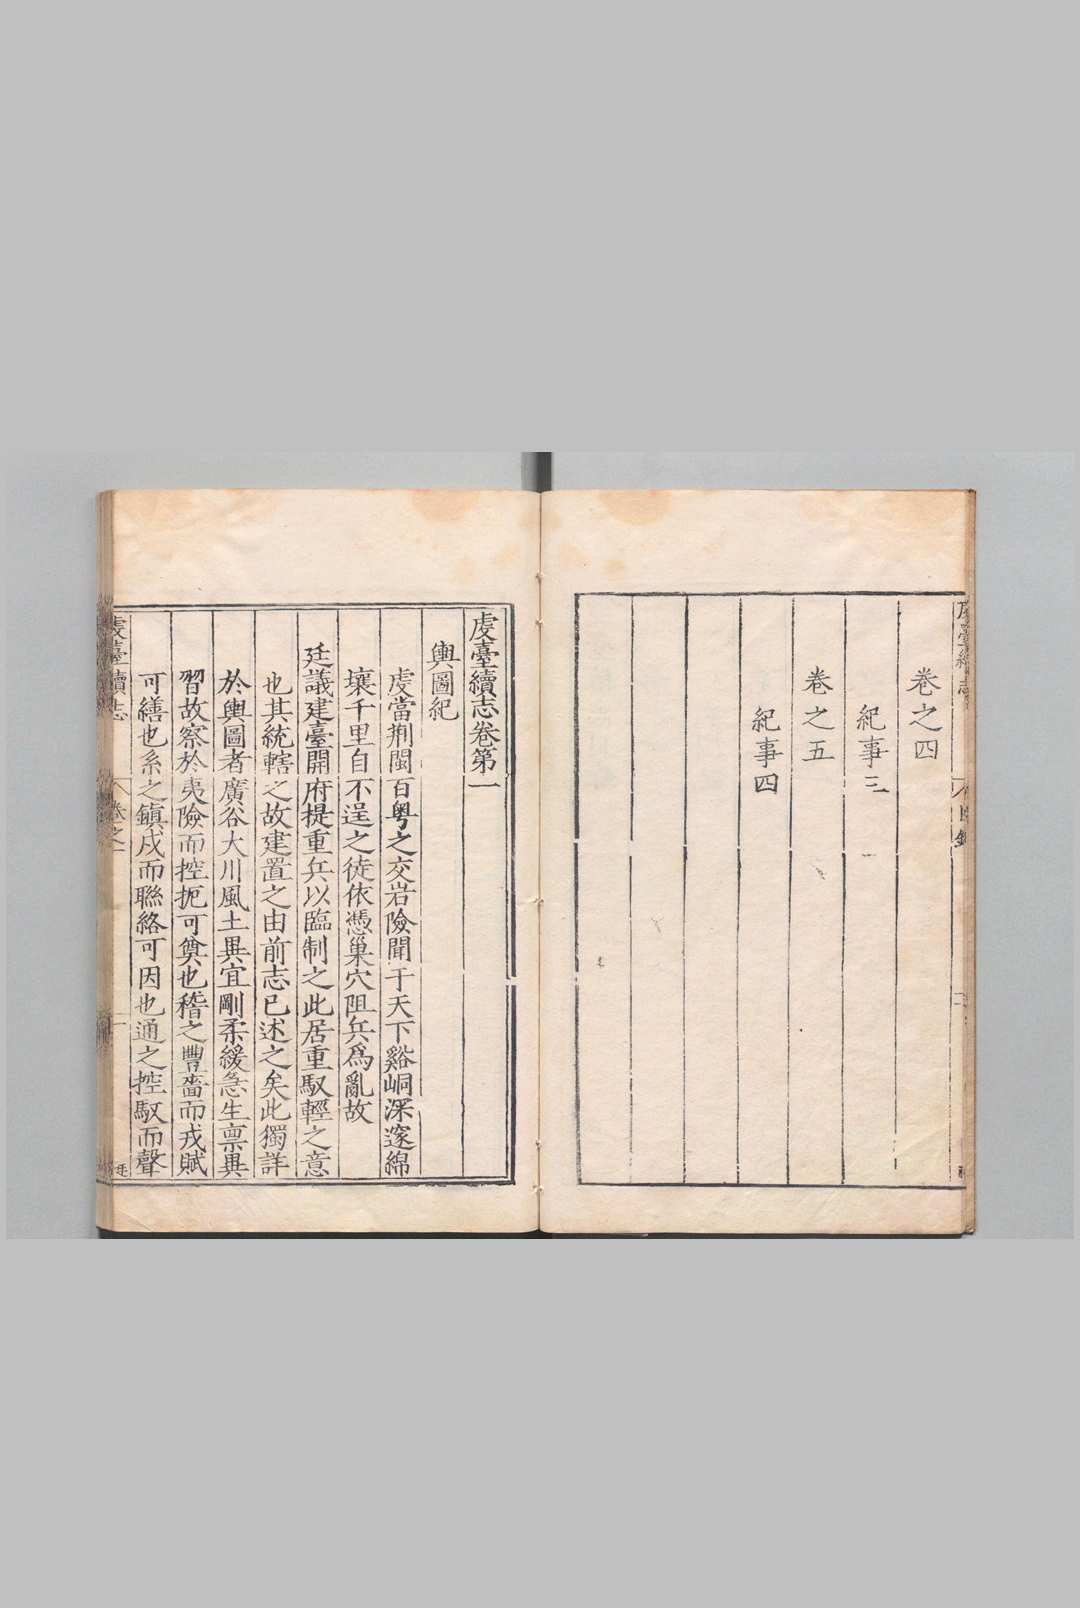 卷之四
紀事三
卷之五
紀事四
虔臺續志卷第一
輿圖紀
虔當荆閩百粤之交岩險聞于天下谿峒深邃綿
壤千里自不逞之徒依憑巢穴阻兵爲亂故
廷議建臺開府提重兵以臨制之此居重馭輕之意
也其統轄之故建置之由前志已述之矣此獨詳
於輿圖者廣谷大川風土異宜剛柔緩急生禀異
習故察於夷險而控扼可奠也稽之豐嗇而戎賦
可繕也系之鎮戍而聯絡可因也通之控馭而聲
虔臺續志
卷之一